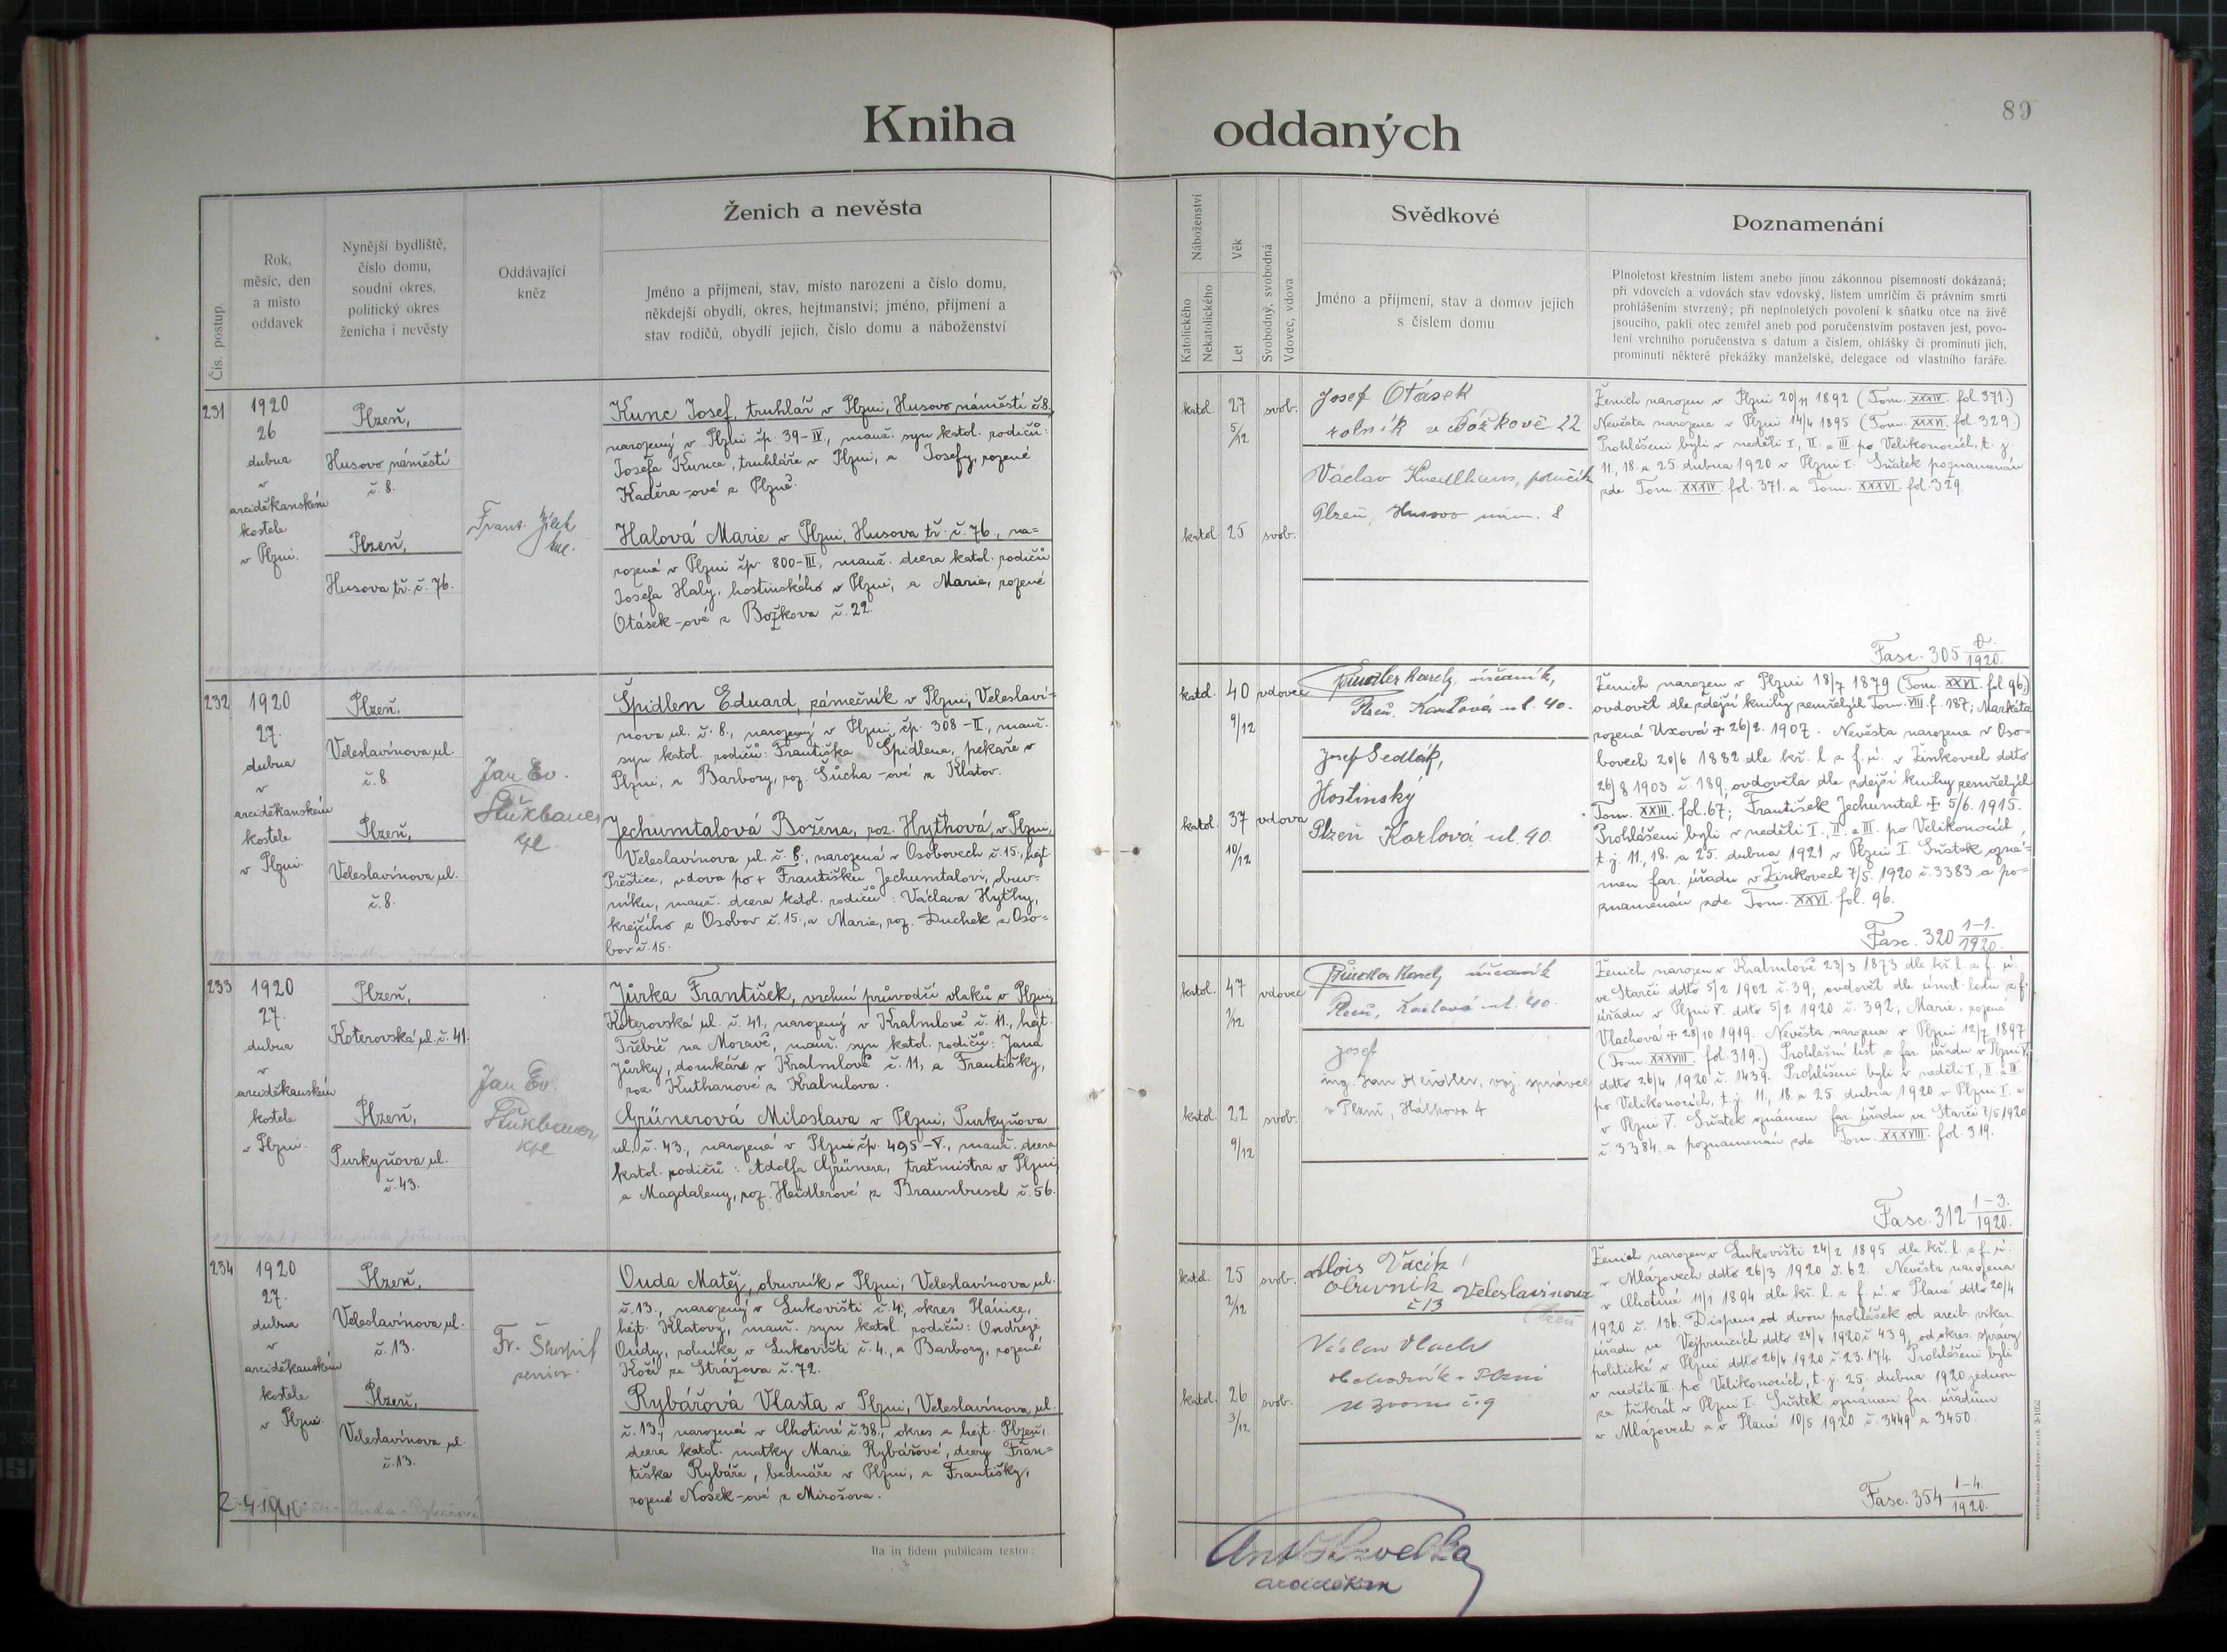 Kniha oddaných
89
Čís. postup.
Rok,
měsíc, den
a místo
oddavek
Nynější bydliště,
číslo domu,
soudní okres,
politický okres
ženicha i nevěsty
Oddávající
kněz
Ženich a nevěsta
Jméno a příjmení, stav, místo narození a číslo domu,
někdejší obydlí, okres, hejtmanství; jméno, příjmení a
stav rodičů, obydlí jejich, číslo domu a náboženství
Náboženství
Katolického
Nekatolického
Věk
Let
Svobodný, svobodná
Vdovec, vdova
Svědkové
Jméno a příjmení, stav a domov jejich
s číslem domu
Poznamenání
Plnoletost křestním listem anebo jinou zákonnou písemností dokázaná;
při vdovcích a vdovách stav vdovský, listem umrlčím či právním smrti
prohlášením stvrzený; při neplnoletých povolení k sňatku otce na živě
jsoucího, pakli otec zemřel aneb pod poručenstvím postaven jest, povo-
lení vrchního poručenstva s datum a číslem, ohlášky či prominutí jich,
prominutí některé překážky manželské, delegace od vlastního faráře.
231
1920
26
dubna
v
arciděkanském
kostele
v Plzni.
Plzeň,
Husovo náměstí
č. 8.
Plzeň,
Husova tř. č. 76.
Frant. Jílek
Kunc Josef, truhlář v Plzni, Husovo náměstí č 8.,
narozený v Plzni čp. 39-IV., manž. syn katol. rodičů:
Josefa Kunce, truhláře v Plzni, a Josefy, rozené
Kaděra-ové z Plzně.
Halová Marie v Plzni, Husova tř. č. 76., na=
rozená v Plzni čp. 800-III., manž. dcera katol. rodičů
Josefa Haly, hostinského v Plzni, a Marie, rozené
Otásek-ové z Božkova č. 22.
katol. 27 5/12 svob.
katol. 25 svob.
Josef Otásek
rolník z Božkově 22
Václav Knedlhans, poručík
Plzeň, Husovo nám. 8
Ženich narozen v Plzni 20/11 1892 (Tom. XXXIV. fol. 371.)
Nevěsta narozena v Plzni 14/4 1895 (Tom. XXXVI. fol. 329.)
Prohlášeni byli v neděli I, II. a III po Velikonocích, t. j.
11., 18. a 25. dubna 1920 v Plzni I. Sňatek poznamenán
zde Tom. XXXIV. fol. 371. a Tom. XXXVI. fol. 329.
Fasc. 305 1920.
232
1920
27.
dubna
v
arciděkanském
kostele
v Plzni.
Plzeň,
Veleslavínova ul.
č. 8
Plzeň,
Veleslavínova ul.
č. 8.
Jan Ev.
Špidlen Eduard, zámečník v Plzni, Veleslaví-
nova ul. č. 8., narozený v Plzni čp. 308-II., manž.
syn katol. rodičů: Františka Špidlena, pekaře v
Plzni, a Barbory, roz. Šůcha-ové z Klatov.
Jechumtalová Božena, roz. Hyťhová, v Plzni,
Veleslavínova ul. č. 8., narozená v Osobovech č. 15., hejt.
Přeštice, vdova po + Františku Jechumtalovi, obuv-
níku, manž. dcera katol. rodičů: Václava Hyťhy,
krejčího z Osobov č. 15., a Marie, roz. Duchek z Oso=
bov č. 15.
katol. 40 9/12 vdovec
katol. 37 10/12 vdova
Karel, účetník,
Plzeň. Karlová ul. 40.
Josef Sedlák,
Hostinský
Plzeň Karlová ul. 40.
Ženich narozen v Plzni 18/7 1879 (Tom. XXVI. fol 96.)
ovdověl dle zdejší knihy zemřelých Tom. VIII f. 187; Markéta
rozená Uxová + 26/2. 1907. Nevěsta narozena v Oso=
bovech 20/6 1882 dle kř. l. z f. ú. v Žinkovech ddto
26/8 1903 č. 189; ovdověla dle zdejší knihy zemřelých
Tom. XXIII. fol. 67; František Jechumtal + 5/6. 1915.
Prohlášeni byli v neděli I., II. a III. po Velikonocích,
t. j. 11., 18. a 25. dubna 1921 v Plzni I. Sňatek ozná=
men far. úřadu v Žinkovech 7/5. 1920 č. 3383 a po=
znamenán zde Tom. XXVI. fol. 96.
Fasc. 320 1-1. 1920.
233
1920
27.
dubna
v
arciděkanském
kostele
v Plzni.
Plzeň,
Koterovská ul. č. 41.
Plzeň,
Purkyňova ul.
č. 43.
Jan Ev.
Jůrka František, vrchní průvodčí vlaků v Plzni,
Koterovská ul. č. 41., narozený v Kralmlově č. 11., hejt.
Třebíč na Moravě, manž. syn katol. rodičů: Jana
Jůrky, domkáře v Kralmlově č. 11., a Františky,
roz Kuthanové z Kralmlova.
Grünerová Miloslava v Plzni, Purkyňova
ul. č. 43., narozená v Plzni čp. 495-V., manž. dcera
katol. rodičů: Adolfa Grünera, traťmistra v Plzni,
a Magdaleny, roz. Heidlerové z Braunbusch č. 56.
katol. 47 1/12 vdovec
katol. 22 9/12 svob.
Karel, účetník
Plzeň, Karlová ul. 40.
Josef
ing. Jan Heidler, voj. správce
v Plzni, Hálkova 4
Ženich narozen v Kralmlově 23/3 1873 dle kř. l. z f. ú.
ve Starči ddto 5/2 1902 č. 39; ovdověl dle úmrt. listu z f.
úřadu v Plzni V. ddto 5/2 1920 č. 392, Marie, rozená
Vlachová + 28/10 1919. Nevěsta narozena v Plzni 12/7 1897
(Tom. XXXVIII. fol. 319.) Prohlašní list z far. úřadu v Plzni V.
ddto 26/4 1920 č. 1439. Prohlášeni byli v neděli I., II. a III.
po Velikonocích, t. j. 11., 18. a 25. dubna 1920 v Plzni I. a
v Plzni V. Sňatek oznámen far. úřadu ve Starči 7/5 1920
č. 3384. a poznamenán zde Tom. XXXVIII. fol. 319.
Fasc. 312 1-3. 1920.
234
1920
27.
dubna
v
arciděkanském
kostele
v Plzni.
Plzeň,
Veleslavínova ul.
č. 13.
Plzeň,
Veleslavínova ul.
č. 13.
Fr.
senior.
Ouda Matěj, obuvník v Plzni, Veleslavínova ul.
č. 13., narozený v Lukovišti č. 4., okres Plánice,
hejt. Klatovy, manž. syn katol. rodičů: Ondřeje
Oudy, rolníka v Lukovišti č. 4., a Barbory, rozené
Kočí ze Strážova č. 72.
Rybářová Vlasta v Plzni, Veleslavínova ul.
č. 13., narozená v Chotiné č. 38., okres a hejt. Plzeň,
dcera katol. matky Marie Rybářové, dcery Fran=
tiška Rybáře, bednáře v Plzni, a Františky,
rozené Nosek-ové z Mirošova.
katol. 25 2/12 svob.
katol. 26 3/12 svob.
Alois Vacík
obuvník Veleslavínova
č 13
Plzeň
Václav Vlach
obchodník - Plzni
u Zvonu č. 9
Ženich narozen v Lukovišti 24/2 1895 dle kř. l. z f. ú.
v Mlázovech ddto 26/3 1920 č. 62. Nevěsta narozena
v Chotiné 11/1 1894 dle kř. l. z f. ú. v Plané ddto 20/4
1920 č. 136. Dispens od dvou prohlášek od arcib. vikar.
úřadu ve Vejprnicích ddto 24/4 1920 č 439, od okres. správy
politické v Plzni ddto 26/4 1920 č 23.174. Prohlášeni byli
v neděli III. po Velikonocích, t. j. 25. dubna 1920 jednou
za třikrát v Plzni I. Sňatek oznámen far. úřadům
v Mlázovech a v Plané 10/5 1920 č. 3449 a 3450.
Fasc. 354 1-4. 1920.
Ouda - Rybářová
Ita in fidem publicam testor:
arciděkan